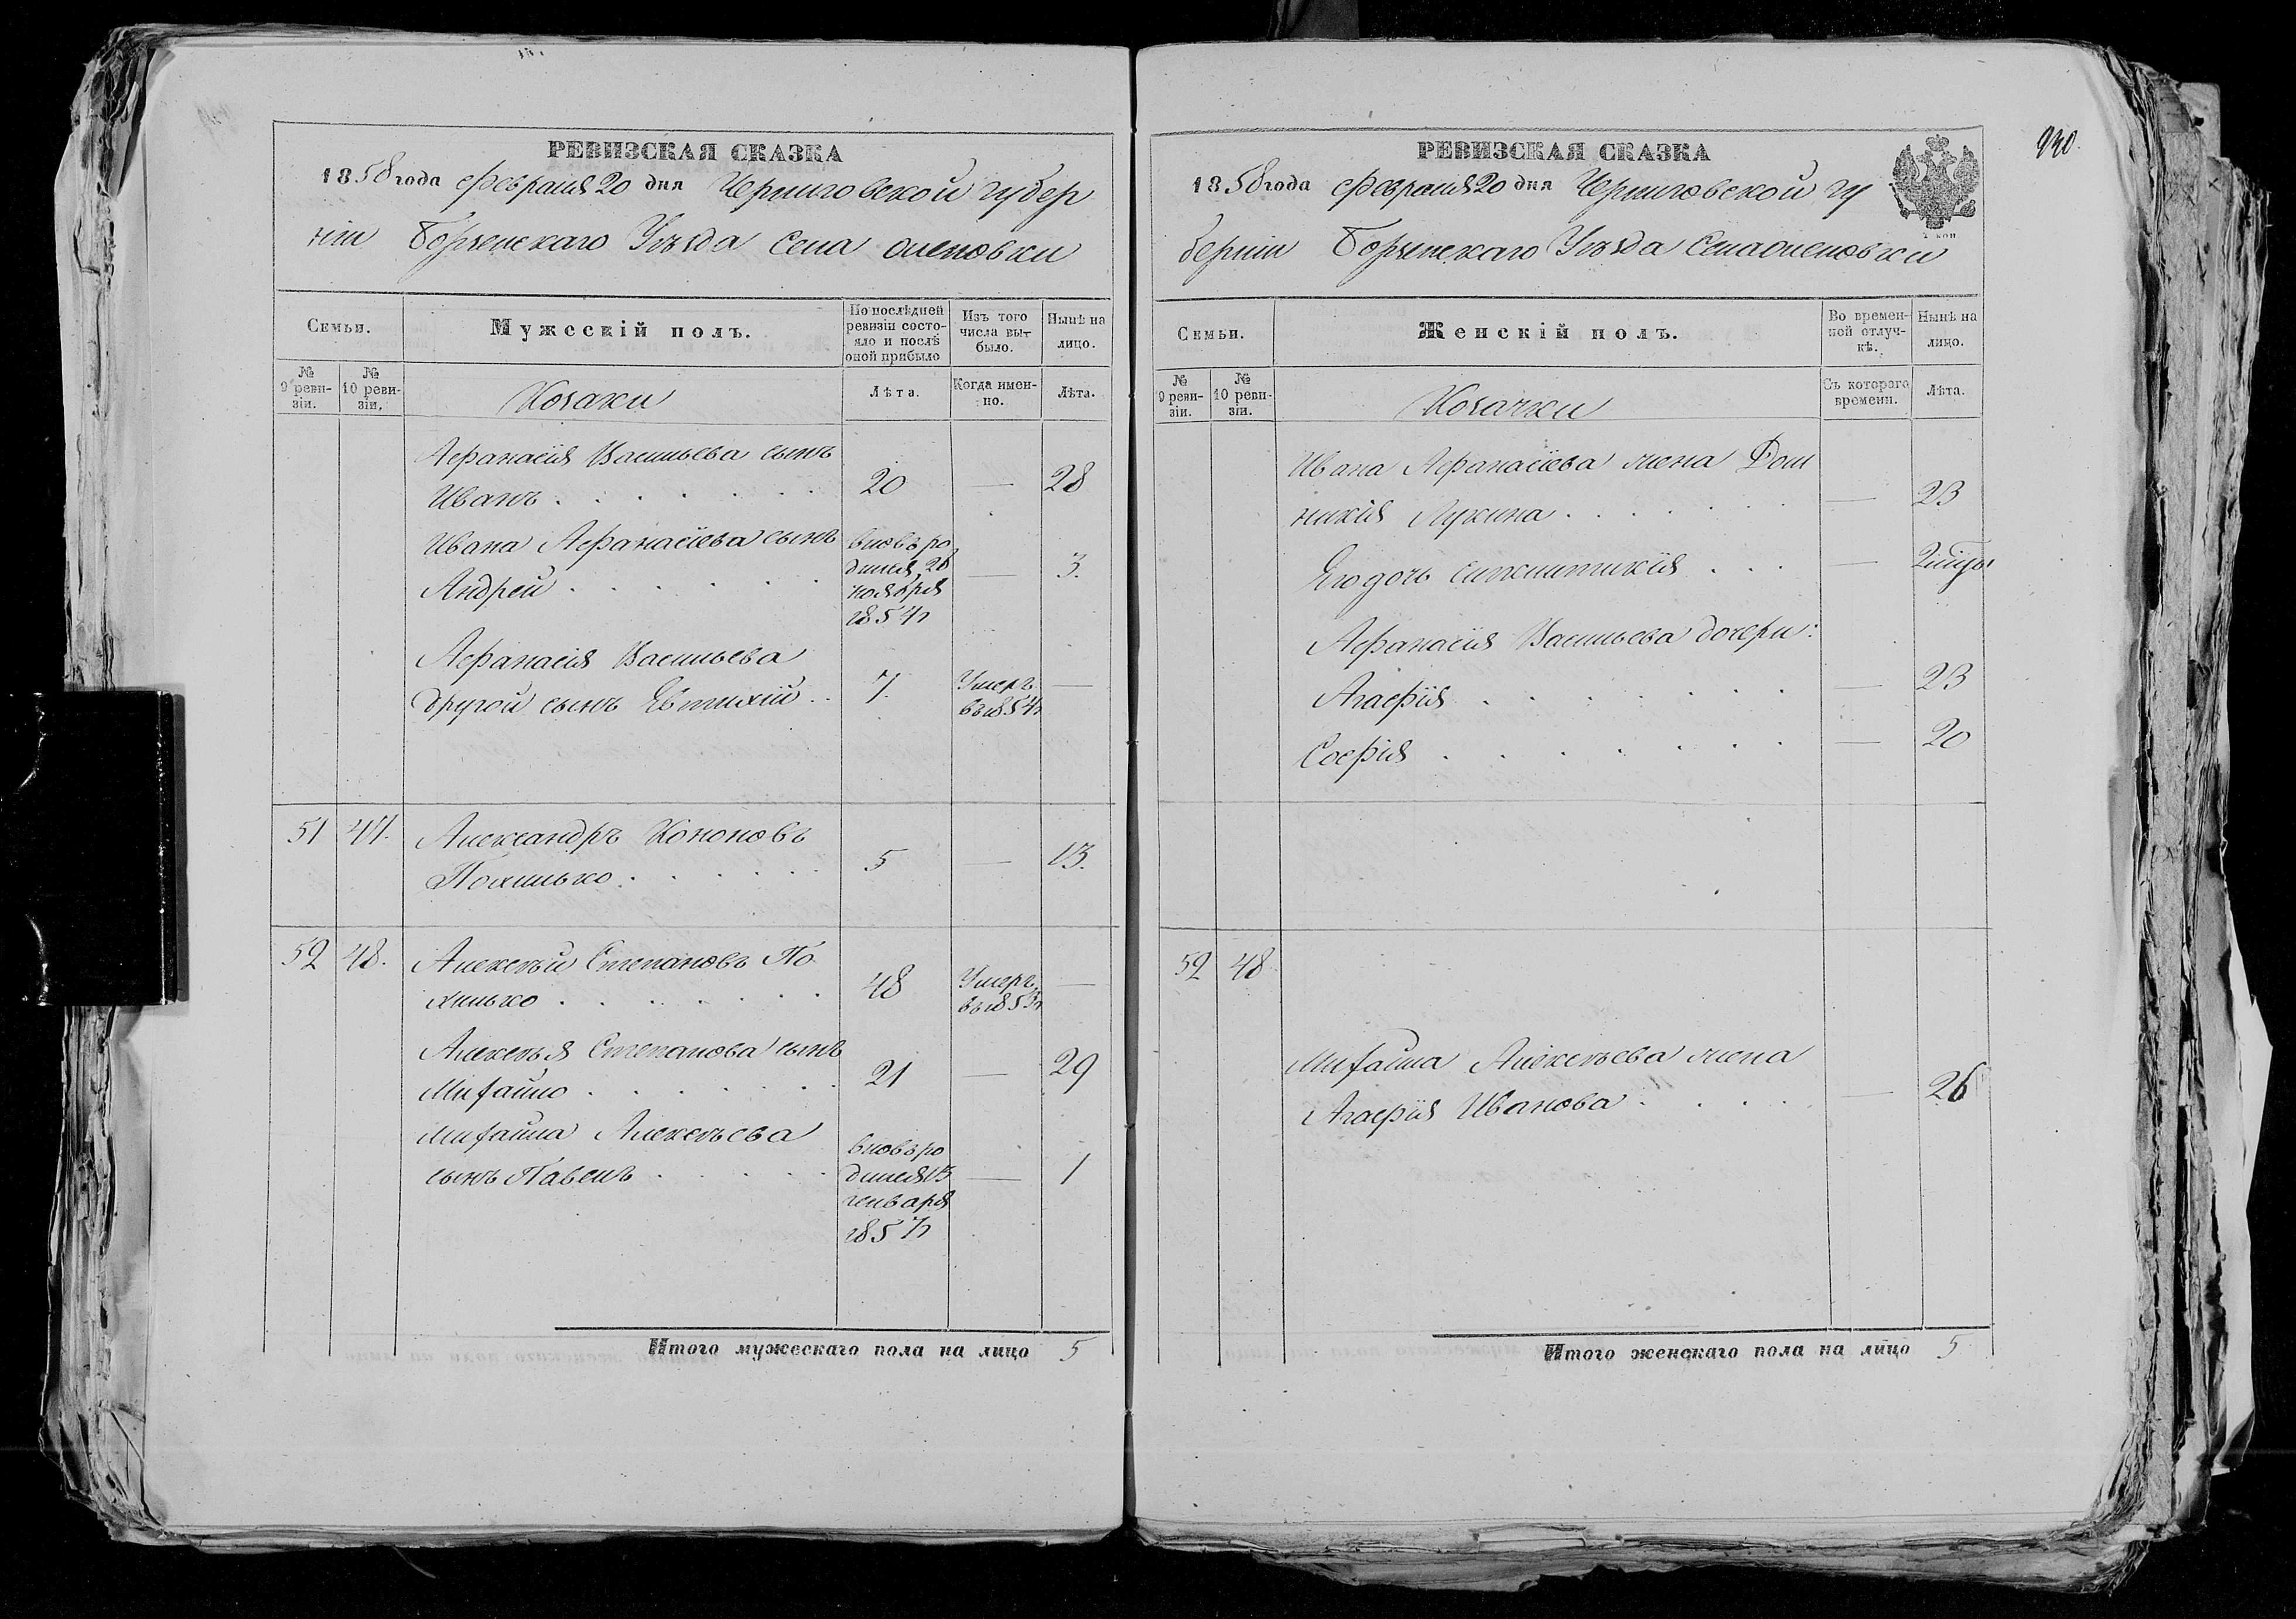 РЕВИЗСКАЯ СКАЗКА
1858 года февраля 20 дня Черниговской губер
ніи Борзенскаго Уѣзда Села Оленовки
Семьи.
Мужескій полъ.
По послѣдней ревизіи состояло и послѣ оной прибыло
Изъ того числа выбыло.
Нынѣ на лицо.
№ 9 ревизіи.
№ 10 ревизіи.
Козаки
Лѣта.
Когда именно.
Лѣта.
Афанасія Васильева сынъ
Иванъ . . . . . . . 20 — 28
Ивана Афанасіева сынъ вновь ро
Андрей . . . . . . дился 28 — 3.
ноября
1854 г
Афанасія Васильева
другой сынъ Евтихій . . 7. Умеръ —
въ 1854 г
51 47. Александръ Кононовъ
Похилько . . . . . . 5 — 13.
52 48. Алексѣй Степановъ По
хилько . . . . . . . 48 Умеръ —
въ 1853 г
Алексѣя Степанова сынъ
Михайло . . . . . . 21 — 29
Михайла Алексѣева вновь ро
сынъ Павелъ . . . . . дился 13 — 1
генваря
1857 г
Итого мужескаго пола на лицо 5
930.
РЕВИЗСКАЯ СКАЗКА
1858 года февраля 20 дня Черниговской гу
берніи Борзенскаго Уѣзда Села Оленовки
Семьи.
Женскій полъ.
Во временной отлучкѣ.
Нынѣ на лицо.
№ 9 ревизіи.
№ 10 ревизіи.
Козачки
Съ котораго времени.
Лѣта.
Ивана Афанасіева жена Дом
никія Лукина . . . . . . — 23
Его дочь . . . —
Афанасія Васильева дочери:
Агафія . . . . . . . — 23
Софія . . . . . . . — 20
52 48
Михайла Алексѣева жена
Агафія Иванова . . . . — 26
Итого женскаго пола на лицо 5